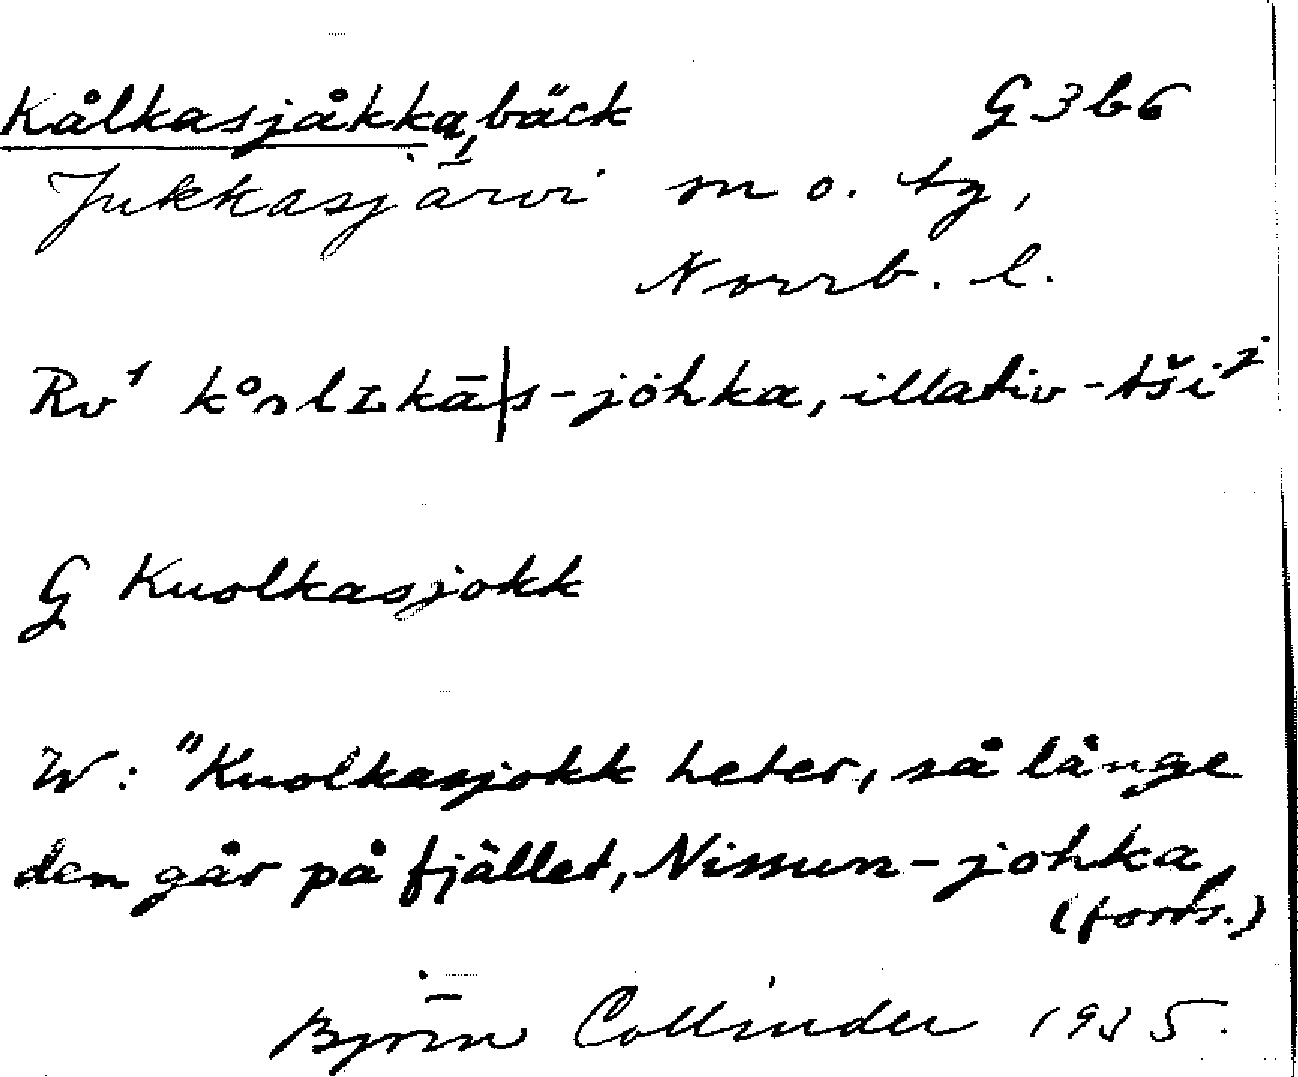 Kålkasjåkka, bäck G3b6
Jukkasjärvi sn o. tg,
Norrb. l.
Rv¹ -johka, illativ -tši
G Kuolkasjokk
W: "Kuolkasjokk heter, så långe
den går på fjället, Nissun-johka,
(forts.)
Björn Collinder 1935.